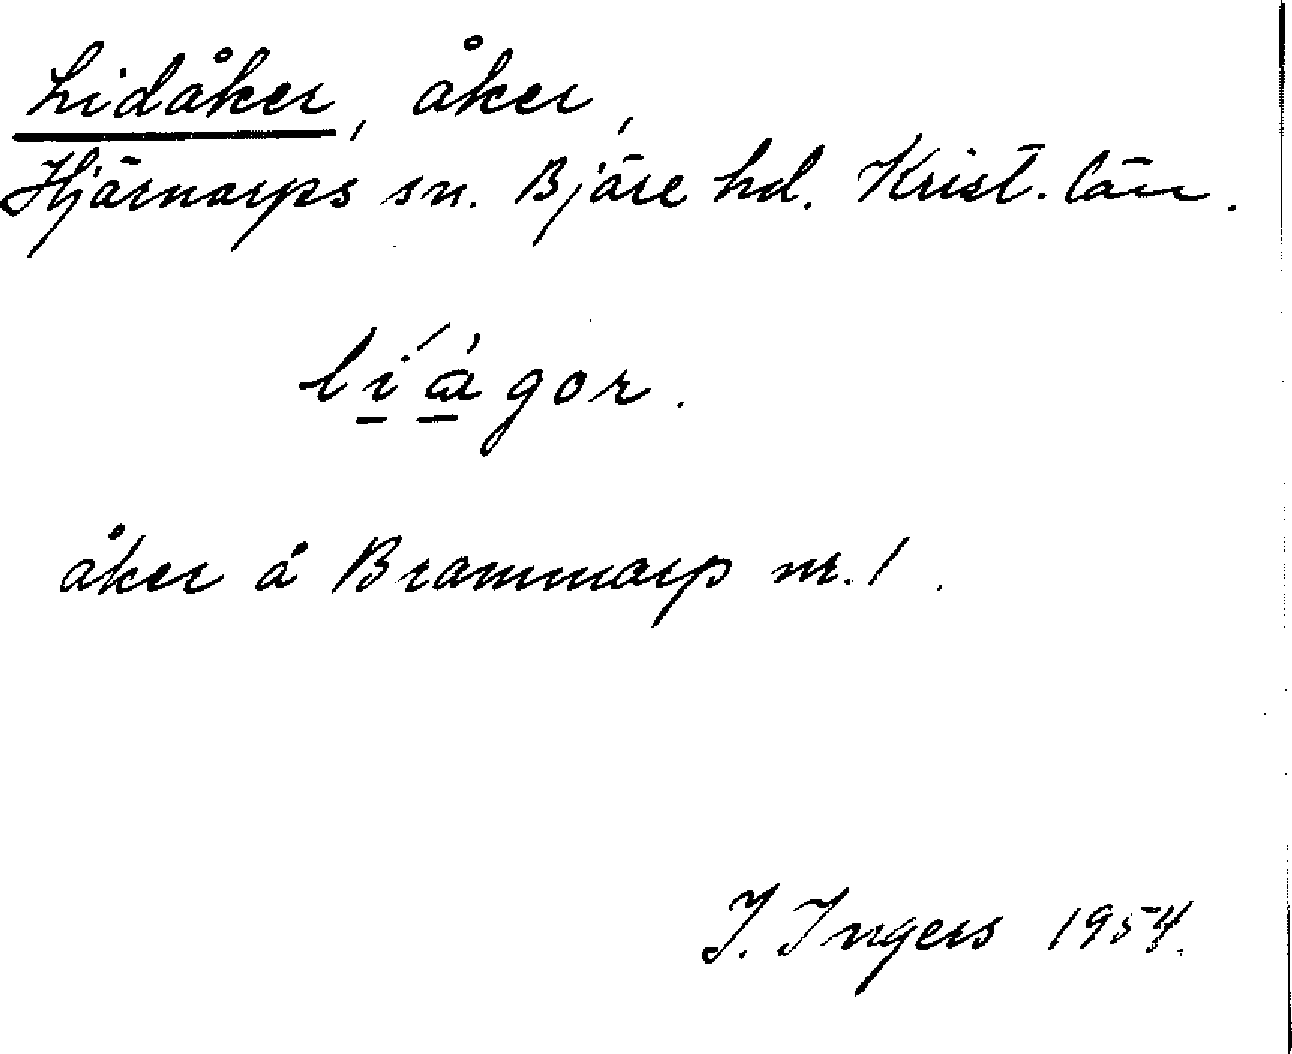 Lidåker, åker,
Hjärnarps sn. Bjäre hd. Krist. län.
lí̱à̱gor.
åker å Brammarp nr. 1.
I. Ingers 1954.